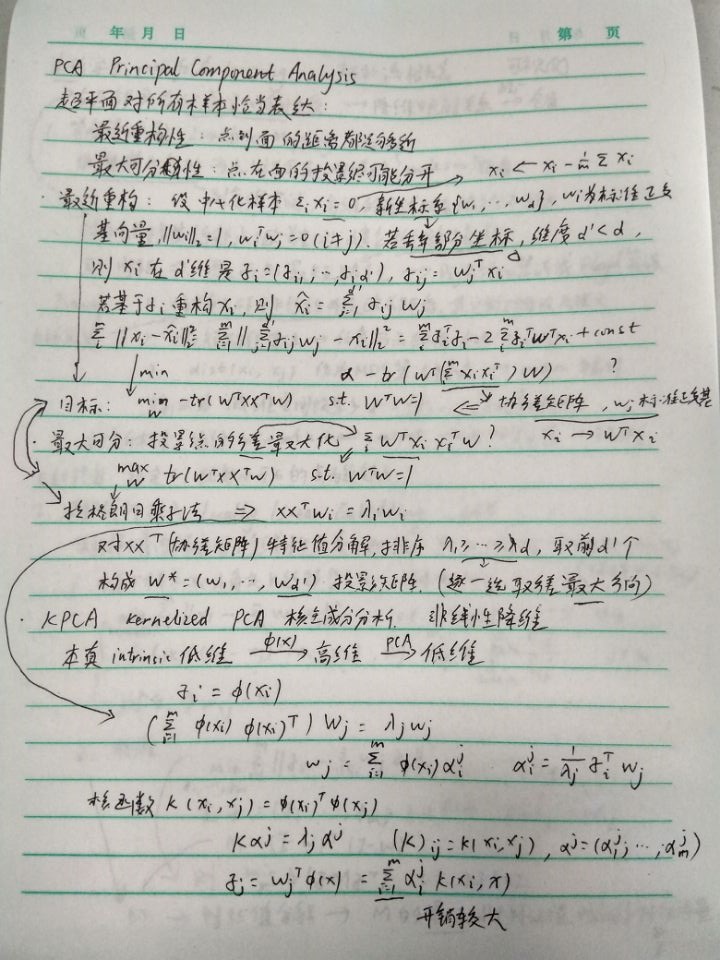 年 月 日 第 页
PCA Principal Component Analysis
超平面对所有样本恰当表达:
最近重构性: 点到面的距离都足够近
最大可分性: 点在面的投影尽可能分开 → xi ← xi - 1/m Σ xi
· 最近重构: 设中心化样本 Σi xi = 0, 新坐标系 {w1, ..., wd}, wi为标准正交
基向量, ||wi||2 = 1, wiᵀwj = 0 (i≠j). 若丢弃部分坐标, 维度 d' < d,
则 xi 在 d'维是 zi = (zi1; ...; zid'), zij = wjᵀxi
若基于 zi 重构 xi, 则 x̂i = Σ(j=1→d') zij wj
Σ(i→m) ||xi - x̂i||2² = Σ(i=1→m) || Σ(j=1→d') zij wj - xi ||2² = Σ(i=1→m) ziᵀzi - 2 Σ(i=1→m) ziᵀWᵀxi + const
↓ min ∝ -tr(Wᵀ(Σ(i=1→m) xixiᵀ)W) ?
目标: min W -tr(WᵀXXᵀW) s.t. WᵀW = I ⇐ 协方差矩阵, wj标准正交基
· 最大可分: 投影点的方差最大化 Σi Wᵀxi xiᵀW ? xi → Wᵀxi
max W tr(WᵀXXᵀW) s.t. WᵀW = I
拉格朗日乘子法 ⇒ XXᵀwi = λiwi
对XXᵀ(协方差矩阵)特征值分解, 排序 λ1 ≥ ... ≥ λd, 取前d'个
构成 W* = (w1, ..., wd') 投影矩阵. (逐一选取方差最大方向)
· KPCA kernelized PCA 核主成分分析. 非线性降维
本真 intrinsic 低维 —ϕ(x)→ 高维 —PCA→ 低维
zi = ϕ(xi)
(Σ(i=1→m) ϕ(xi) ϕ(xi)ᵀ) wj = λj wj
wj = Σ(i=1→m) ϕ(xi) αiʲ αiʲ = 1/λj ziᵀ wj
核函数 k(xi, xj) = ϕ(xi)ᵀϕ(xj)
Kαʲ = λj αʲ (K)ij = k(xi, xj), αʲ = (α1ʲ; ...; αmʲ)
zj = wjᵀϕ(x) = Σ(i=1→m) αiʲ k(xi, x)
开销较大